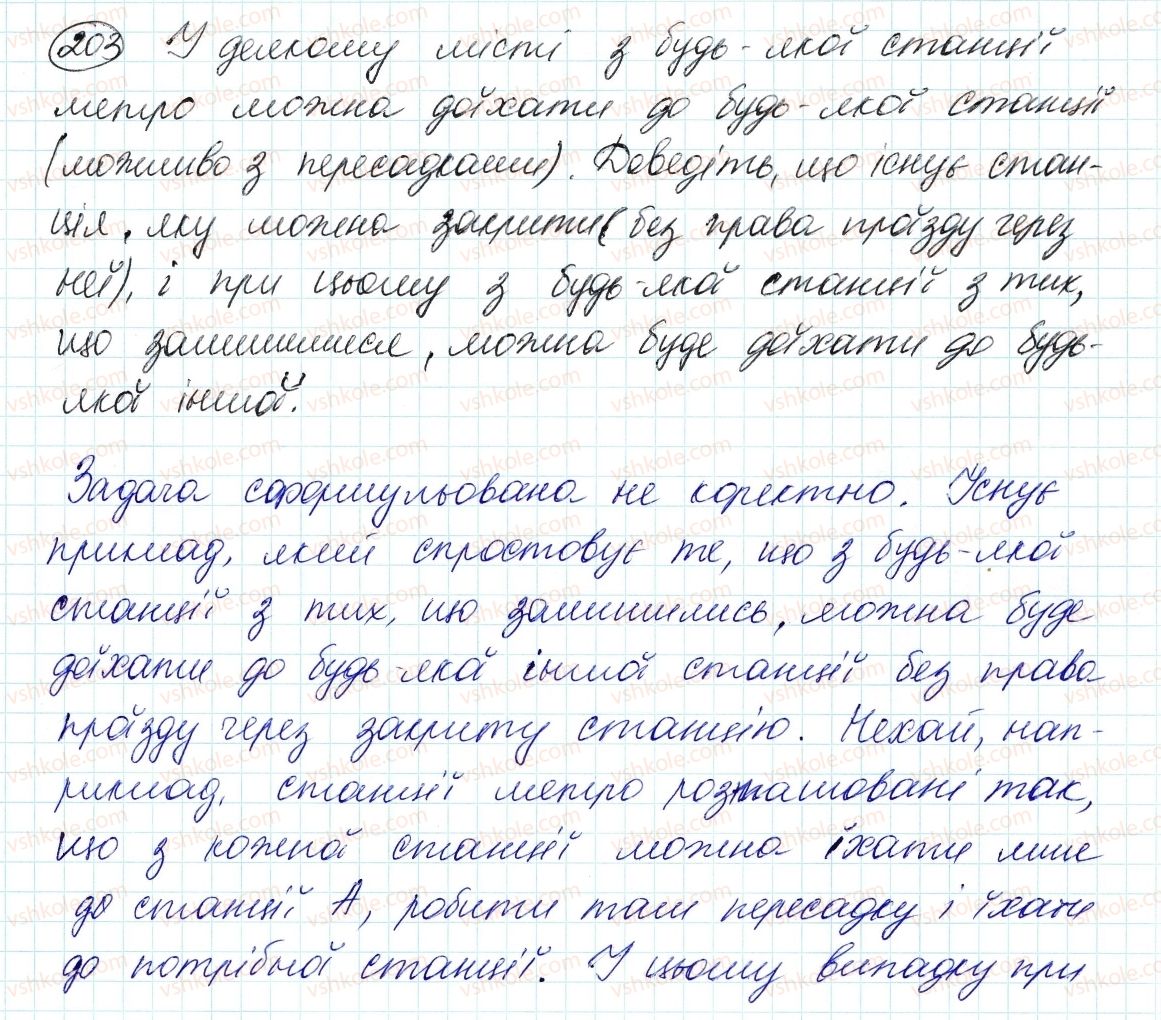 203 У деякому місті з будь-якої станції
метро можна доїхати до будь-якої станції
(можливо з пересадками). Доведіть, що існує стан-
ція, яку можна закрити (без права проїзду через
неї), і при цьому з будь-якої станції з тих,
що залишилися, можна буде доїхати до будь-
якої іншої.
Задача сформульована не коректно. Існує
приклад, який спростовує те, що з будь-якої
станції з тих, що залишились, можна буде
доїхати до будь-якої іншої станції без права
проїзду через закриту станцію. Нехай, нап-
риклад, станції метро розташовані так,
що з кожної станції можна їхати лише
до станції А, робити там пересадку і їхати
до потрібної станції. У цьому випадку при